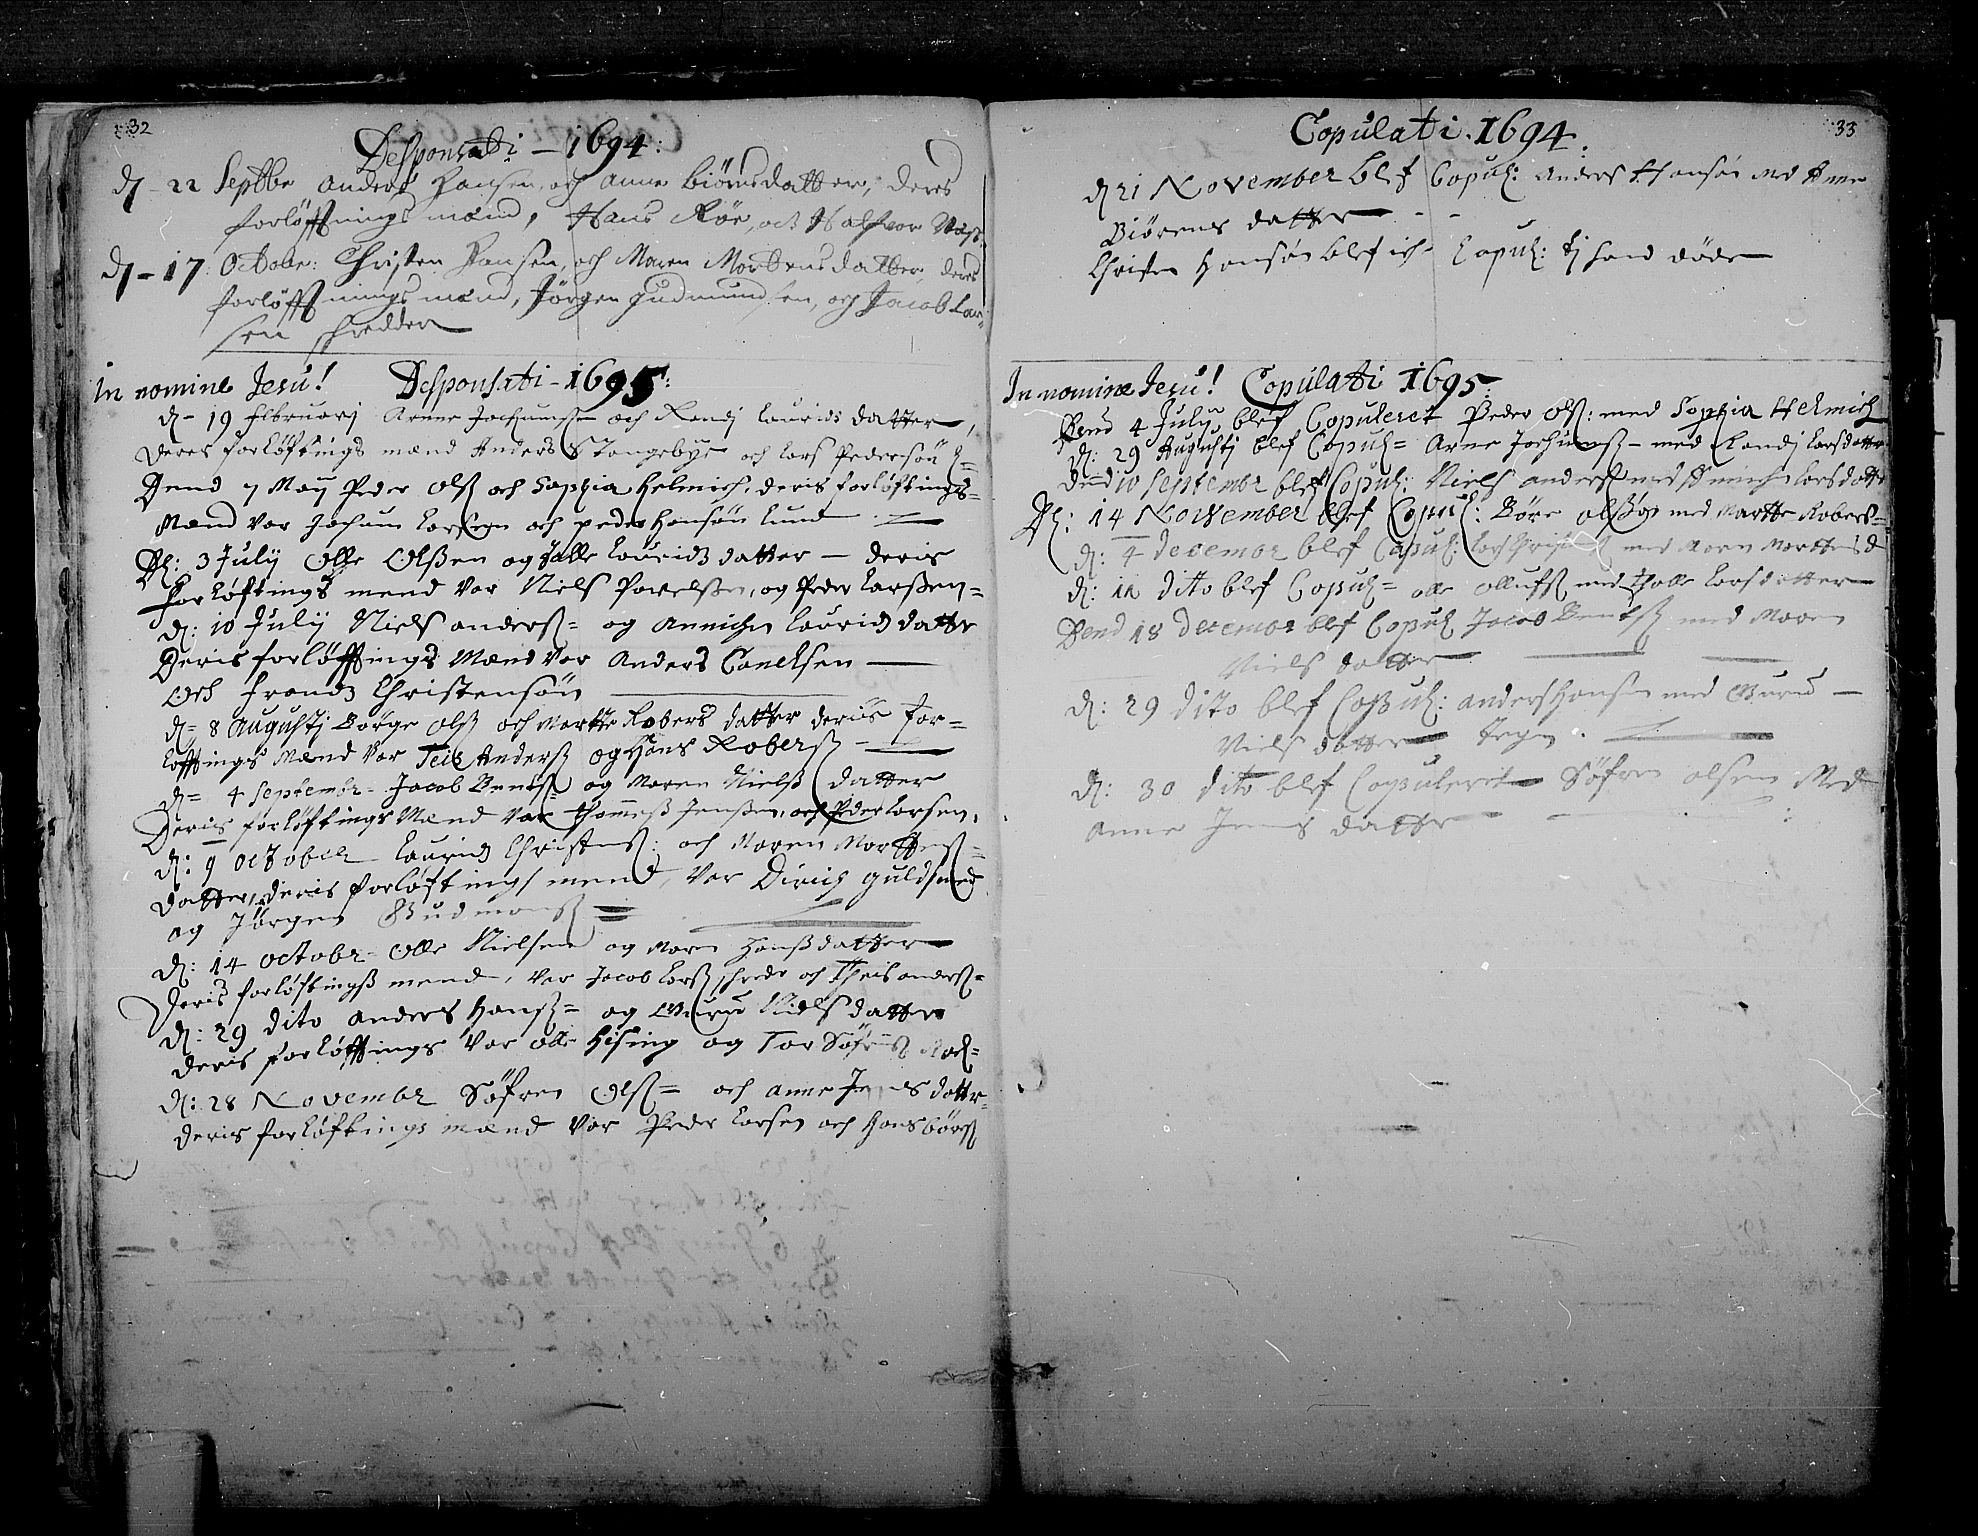 32
Desponsati - 1694:
dj - 22 Septbr Anders Hansen, och Anne Biörnsdatter, deres
forløffnings mænd, Hans Röe, och Halfvor
dj - 17: Octobr: Christen Hansen, och Maren Mortensdatter deres
forløffnings mænd, Jörgen Gudmundsen, og Jacob Lar-
sen skredder
In nomine Jesu! Desponsati - 1695:
d - 19 Februarj Arne Jochumss och Randj Laurids datter,
deres forløftings mænd Anders Stangebye och Lars Pedersøn
Dend 7 Maij Peder Olss och Sophia Helmich, deris forløftings-
Mænd var Jochum och peder Hansøn Lund
Dl: 3 Julij Olle Olssen og Lauridz datter - deris
forløftings mend var Niels Povelssen, og Peder Larssen-
d: 10 Julij Niels anderss= og Annichen Lauridz datter
Deris forløffings Mænd var Anders Canchsen
och Frandz Christensøn
d= 8 Augustj Börge Olss och Martte Robers datter deris for-
løftings Mænd var Teis Anderss og Hans Roberss -
d= 4 Septembr - Jacob Bentss og Maren Nielss datter
Deris forløftings Mænd var Thommess Jenssen, och Peder Larsen,
d: 9 October Lauridz Christenss: och Maren Mortens-
datter, deris forløftings mend, var Dirich guldsmed
og Jörgen Gudmanss
d: 14 octobr - Olle Nielsen og Maren Hanssdatter
Deris forløftingss mend, var Jacob Larss skredr och Theis anderss=
d: 29 dito anders Hanss= og Guru Niels datter
deris forløftings var Olle Hising og Tor Söfrenss
d: 28 Novembr Söfren Olss= och anne Jens dattr-
deris forløftings mænd var Peder Larsen och Hans börss
33
Copulati 1694.
d 21 November blef Copul: Anders Hansøn med Anne
Biörens datter - -
Christen Hansøn blef ich- Copul: tj hand døde
In nomine Jesu! Copulati 1695:
Dend 4 July blef Copuleret Peder Ols: med Sophia Helmich
d: 29 Augustj blef Copul= Arne Jochumss - med Randj Larsdatter
Dend 10 Septembr blef Copul: Niels anderss med Annichen Larsdatter
Dl: 14 November blef Copul: Böre olssøn med Martte Robers-
d: 4 decembr blef Copul: Lars Christenss med Maren Mortens d
d: 11 dito blef Copul= olle ollufss med Larsdatter
Dend 18 decembr blef Copul Jacob Bentss med Maren
Niels datter
d: 29 dito blef Copul: anders Hansen med Guru -
Niels datter Tegn.
d: 30 dito blef Copuleret Söfren olsen Med
Anne Jens datter